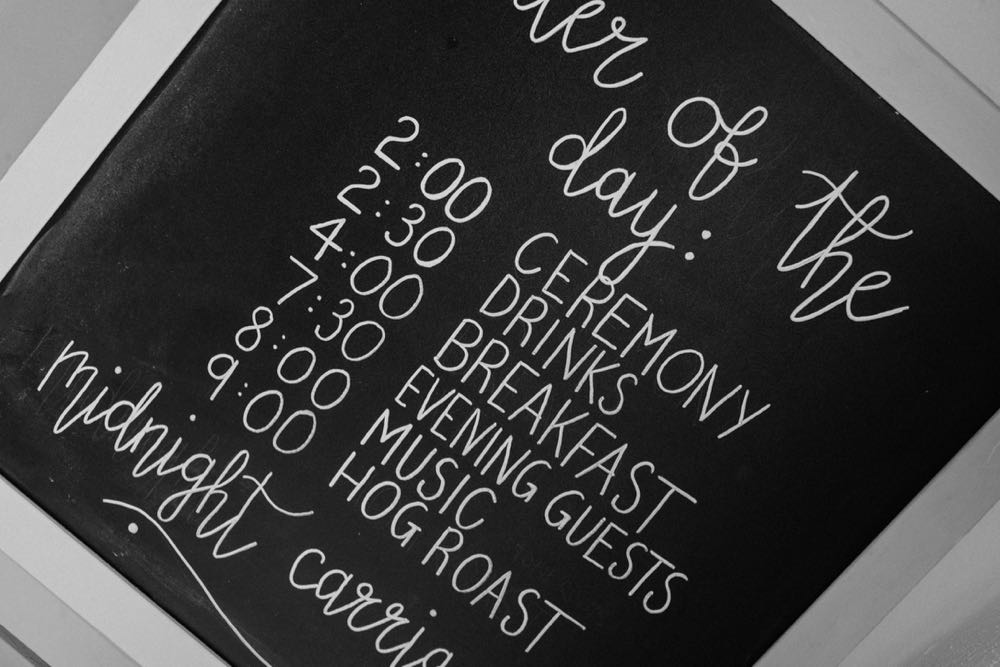 of the
day:
2:00 CEREMONY
2:30 DRINKS
4:00 BREAKFAST
7:30 EVENING GUESTS
8:00 MUSIC
9:00 HOG ROAST
midnight